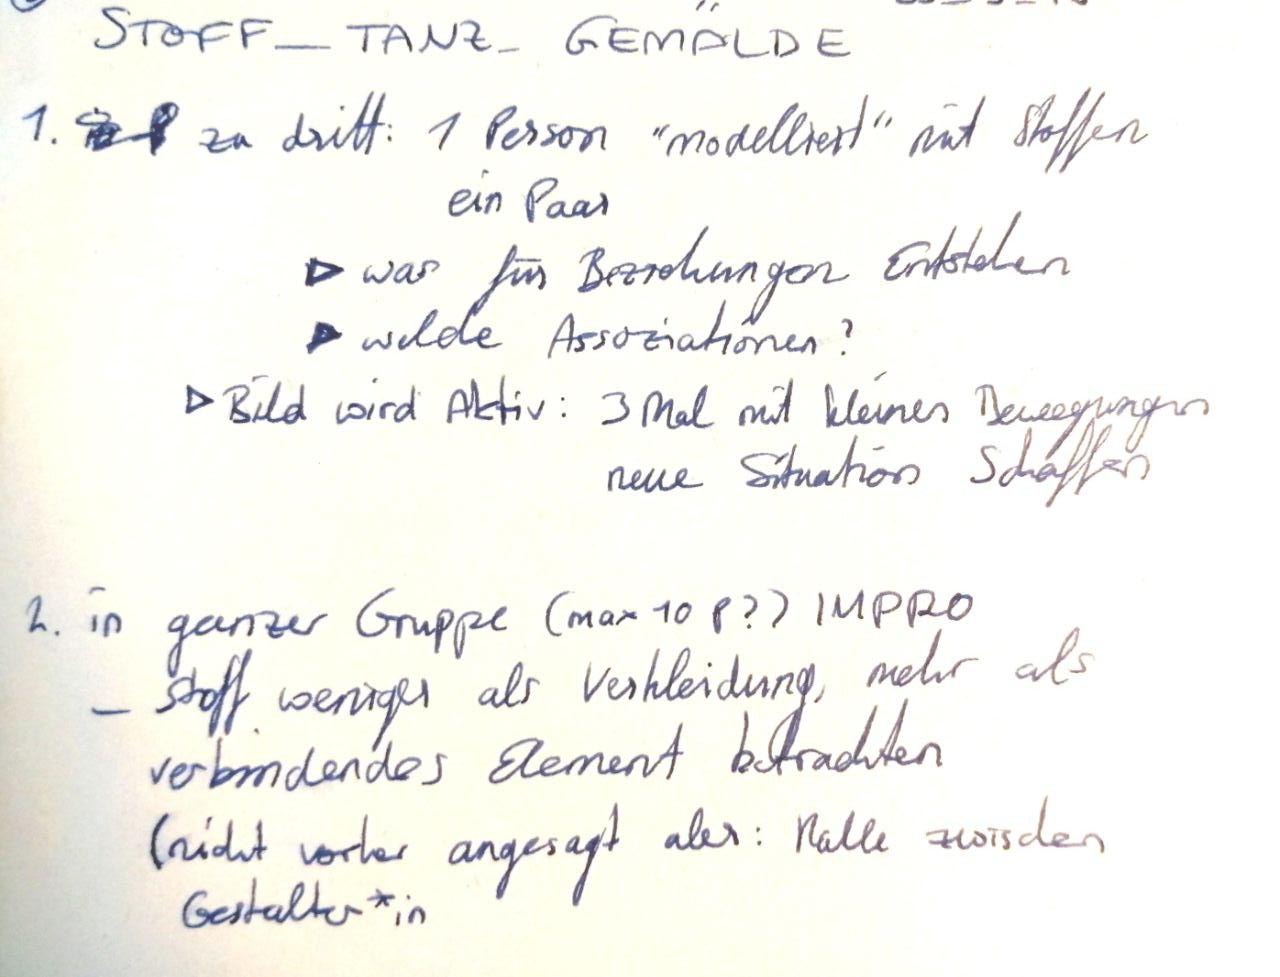 STOFF_TANZ_ GEMÄLDE
1. zu dritt: 1 Person "modelliert" mit Stoffen
ein Paar
▷ was für Beziehungen Entstehen
▶ welche Assoziationen?
▷ Bild wird Aktiv: 3 Mal mit kleinen Bewegungen
neue Situation Schaffen
2. in ganzer Gruppe (max 10 P?) IMPRO
_ Stoff weniger als Verkleidung, mehr als
verbindendes Element betrachten
(nicht vorher angesagt aber: Rolle zwischen
Gestalter*in